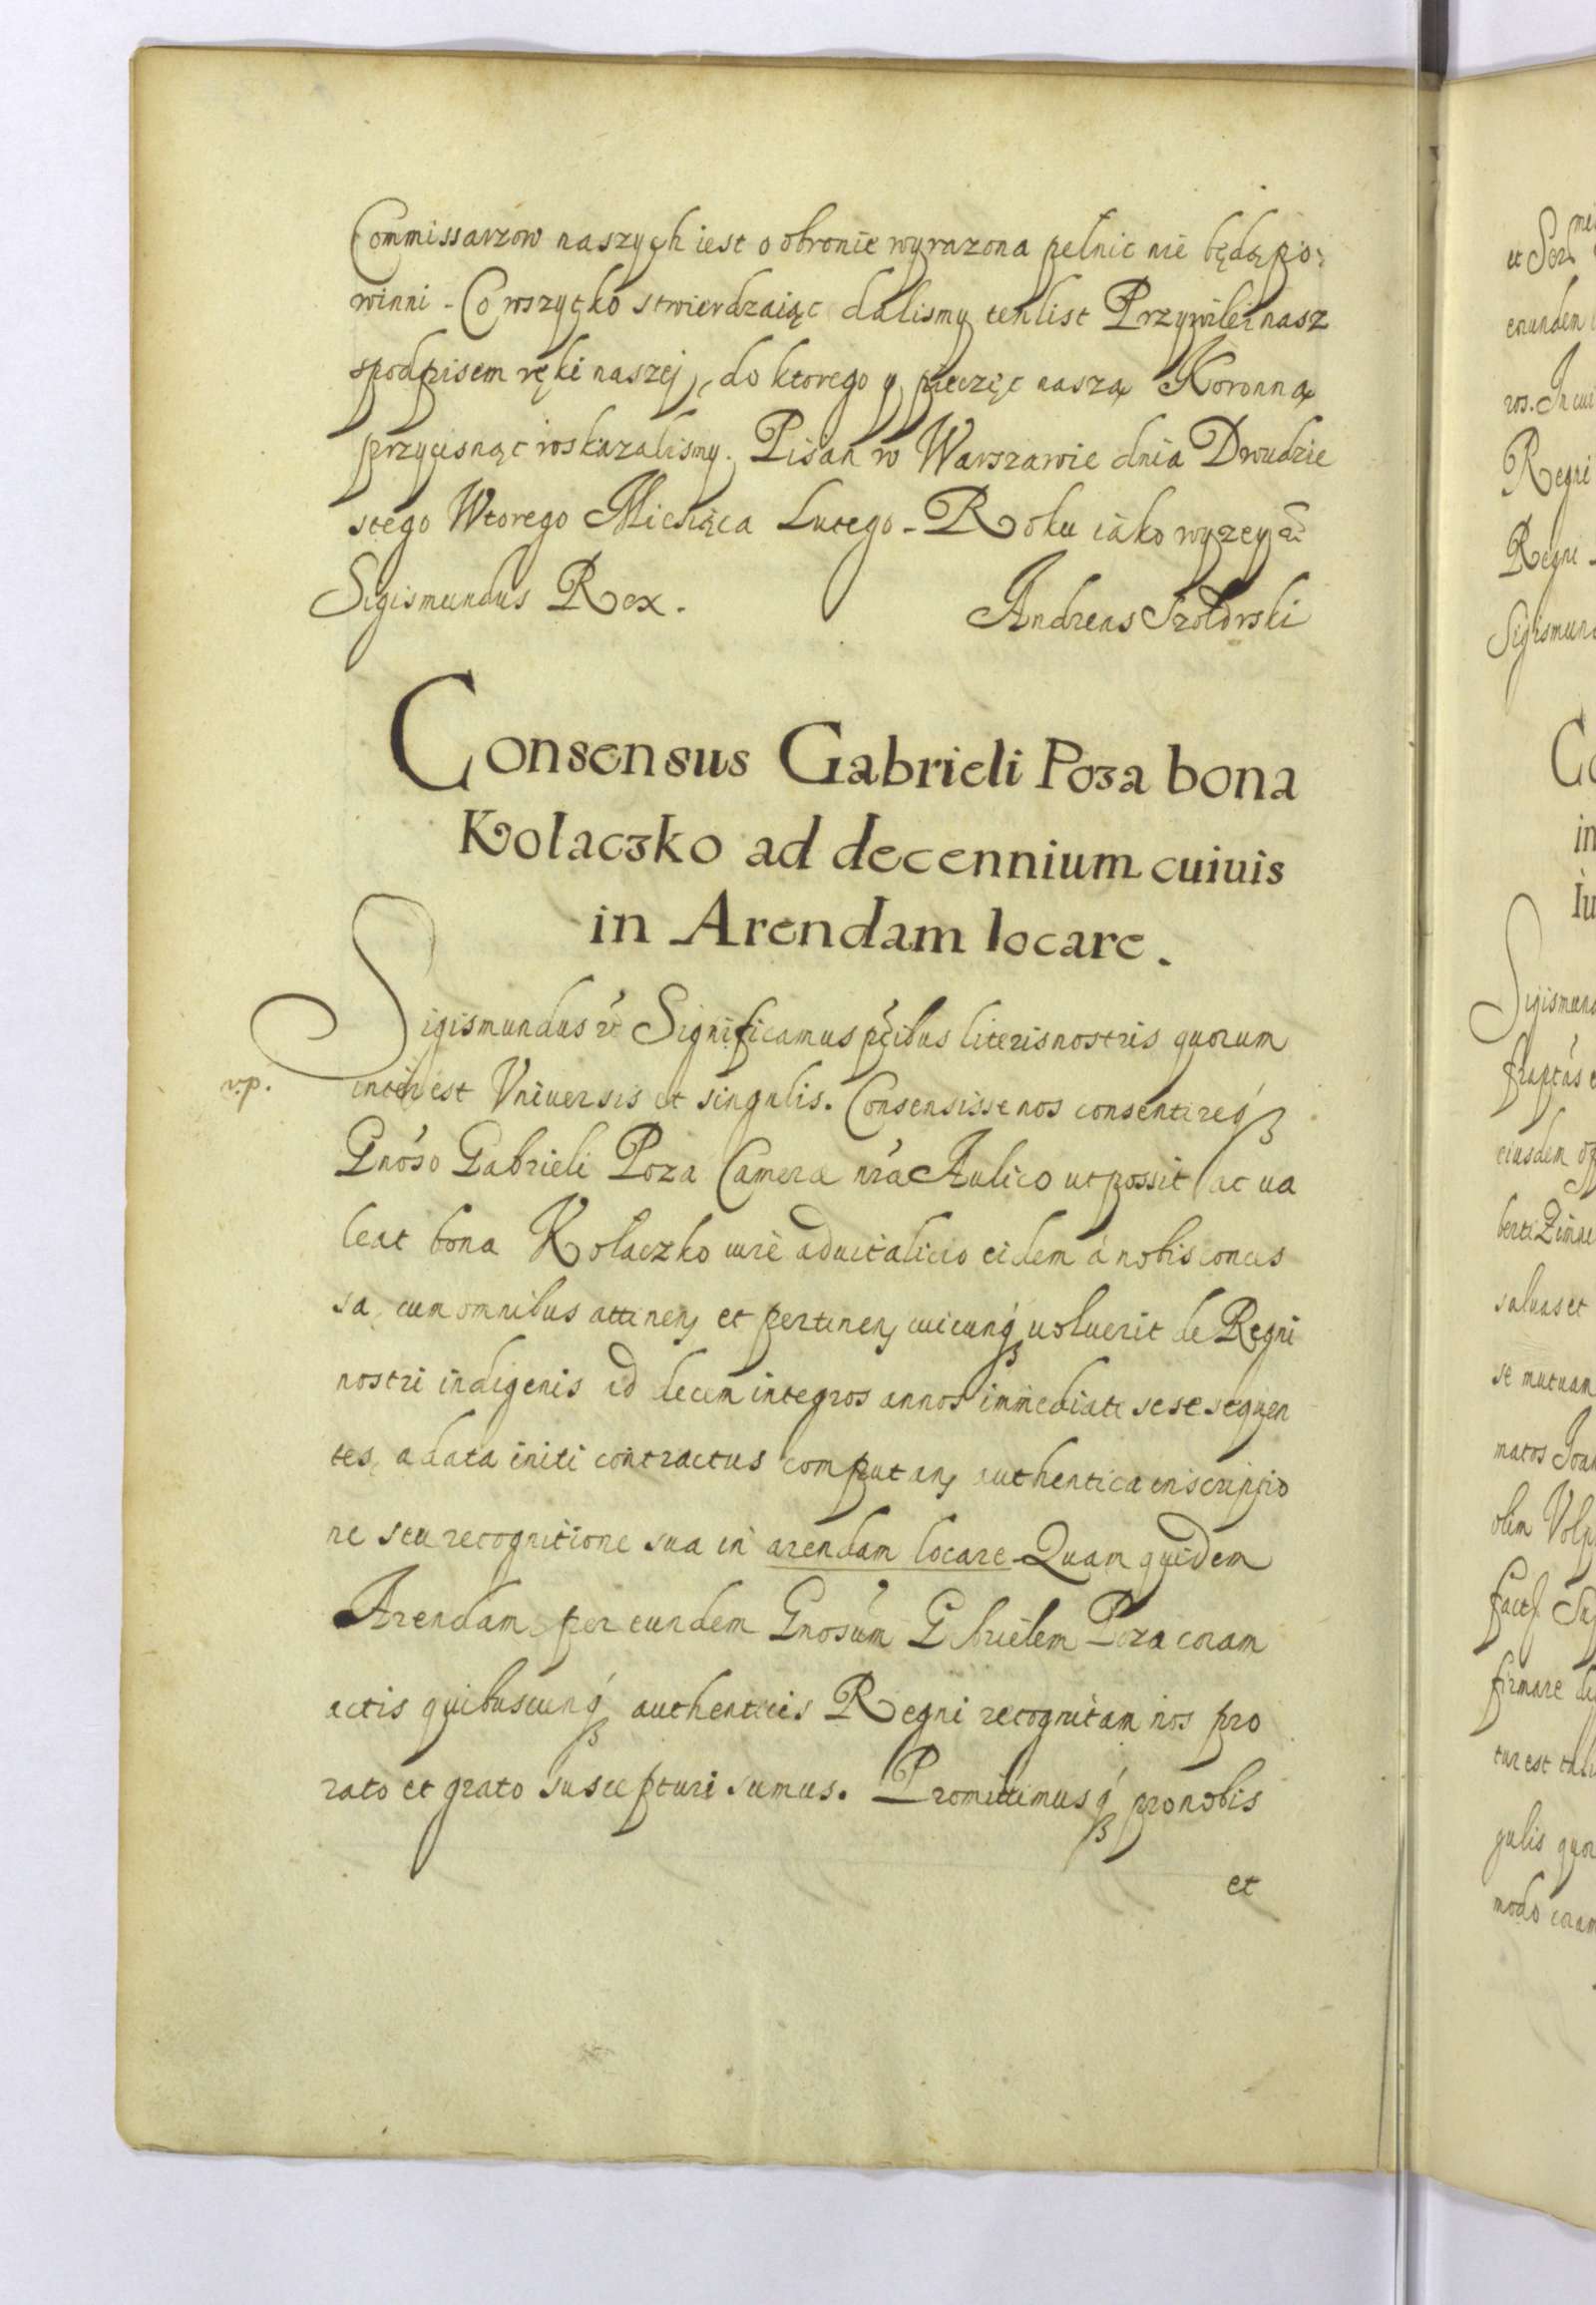 Commissarzow naszych iest o obronie wyrazona pelnic nie będą po:
winni - Co wszytko stwierdzaiąc dalismy ten list Przywilei nasz
spodpisem ręki naszej, do ktorego y pieczęc naszą Koronną
przycisnąc roskazalismy. Pisan w Warszawie dnia Dwudzie
stego Wtorego Miesiąca Lutego - Roku iako wyzey
Sigismundus Rex. Andreas Szoldrski
Consensus Gabrieli Poza bona
Kolaczko ad decennium cuiuis
in Arendam locare.
Sigismundus Significamus pñtibus literis nostris quorum
v.p. interest Vniuersis et singulis. Consensisse nos consentireq́
Gnóso Gabrieli Poza Cameræ nrá Aulico ut possit ac ua
leat bona Kolaczko iure aduitalicio eidem á nobis conces
sa, cum omnibus attinen, et pertinen, cuicunq́ uoluerit de Regni
nostri indigenis ad decem integros annos immediate sese sequen
tes, a data initi contractus computan, authentica inscriptio
ne seu recognitione sua in arendam locare - Quam quidem
Arendam per eundem Gnósum Gabrielem Poza coram
actis quibuscunq́ authenticis Regni recognitam nos pro
rato et grato suscepturi sumus. Promittimusq́ pro nobis
et
ros. In cui
Regni
Regni
Sigismund
Co
in
Iu
Sigismund
eiusdem
saluas et
se mutuam
matos Joan
firmare
tur est
gulis quor
modo coram